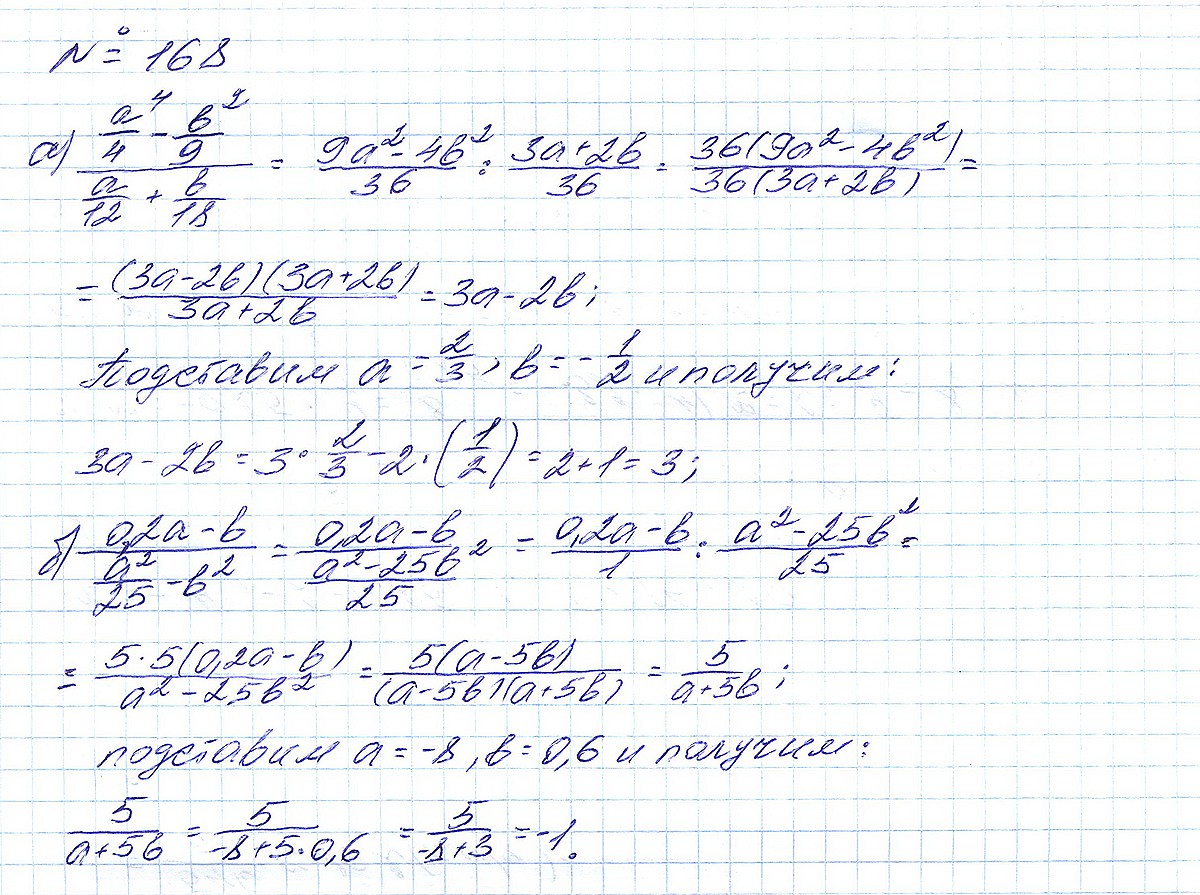 № 168
а) (a⁴/4 - b²/9)/(a/12 + b/18) = (9a² - 4b²)/36 : (3a+2b)/36 = 36(9a² - 4b²)/36(3a+2b) =
= (3a-2b)(3a+2b)/(3a+2b) = 3a - 2b;
Подставим a = 2/3, b = -1/2 и получим:
3a - 2b = 3 · 2/3 - 2 · (1/2) = 2+1 = 3;
б) (0,2a - b)/(a²/25 - b²) = (0,2a - b)/((a² - 25b²)/25) = (0,2a - b)/1 : (a² - 25b²)/25 =
= 5·5(0,2a - b)/(a² - 25b²) = 5(a - 5b)/(a-5b)(a+5b) = 5/(a+5b);
подставим a = -8, b = 0,6 и получим:
5/(a+5b) = 5/(-8+5·0,6) = 5/(-8+3) = -1.